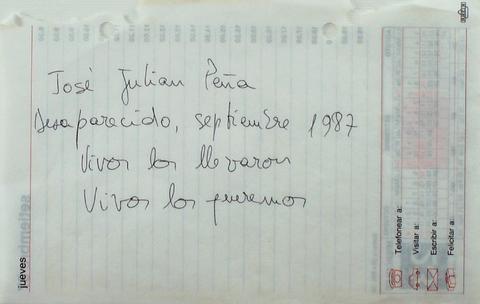 José Julian Peña
Desaparecido, septiembre 1987
Vivos los llevaron
Vivos los queremos
jueves
Telefonear a:
Visitar a:
Escribir a:
Felicitar a: